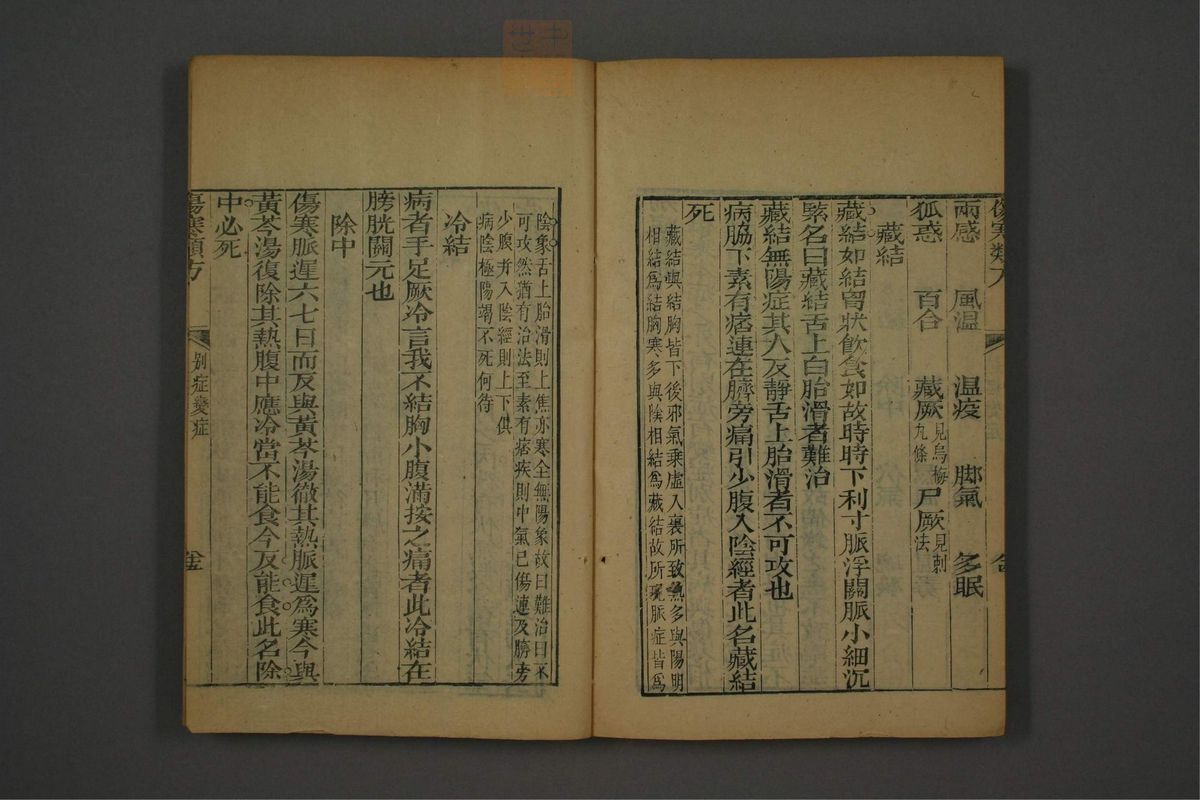 傷寒類方
兩感　風溫　溫疫　脚氣　多眠
狐惑　百合　藏厥見烏梅九條　尸厥見刺法
藏結
藏結如結胷狀飲食如故時時下利寸脈浮關脈小細沉
緊名曰藏結舌上白胎滑者難治
藏結無陽症其人反靜舌上胎滑者不可攻也
病脇下素有痞連在臍旁痛引少腹入陰經者此名藏結
死
藏結與結胸皆下後邪氣乘虛入裏所致熱多與陽明
相結爲結胸寒多與陰相結爲藏結故所現脈症皆爲
陰象舌上胎滑則上焦亦寒全無陽象故曰難治曰不
可攻然猶有治法至素有痞疾則中氣已傷連及臍旁
少腹并入陰經則上下俱
病陰極陽竭不死何待
冷結
病者手足厥冷言我不結胸小腹滿按之痛者此冷結在
膀胱關元也
除中
傷寒脈遲六七日而反與黃芩湯徹其熱脈遲爲寒今與
黃芩湯復除其熱腹中應冷當不能食今反能食此名除
中必死
傷寒類方
別症變症